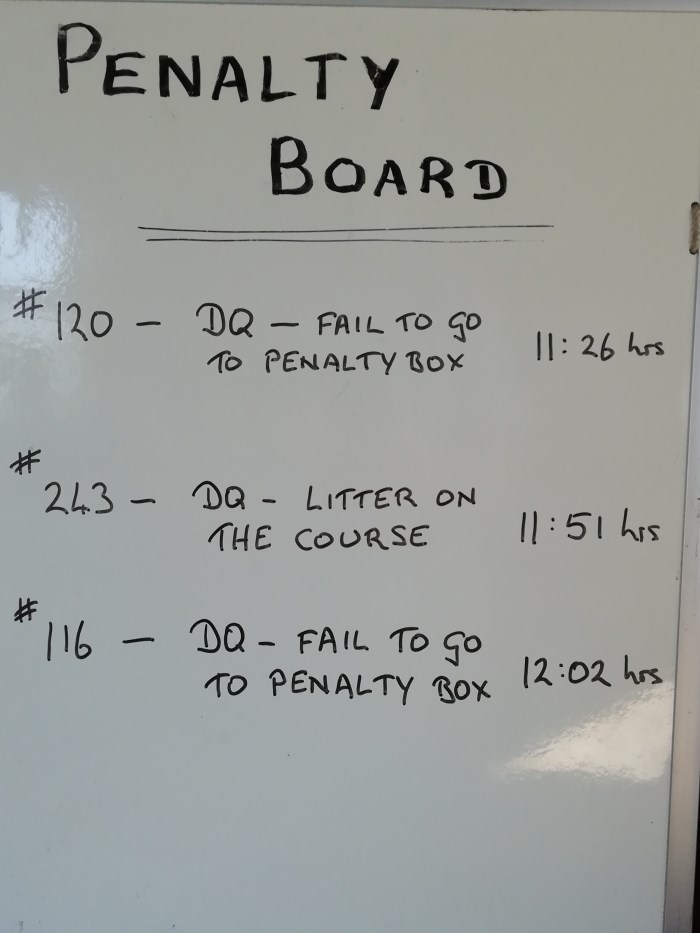 PENALTY
BOARD
#120 - DQ - FAIL TO GO
TO PENALTY BOX 11:26 hrs
#243 - DQ - LITTER ON
THE COURSE 11:51 hrs
#116 - DQ - FAIL TO GO
TO PENALTY BOX 12:02 hrs